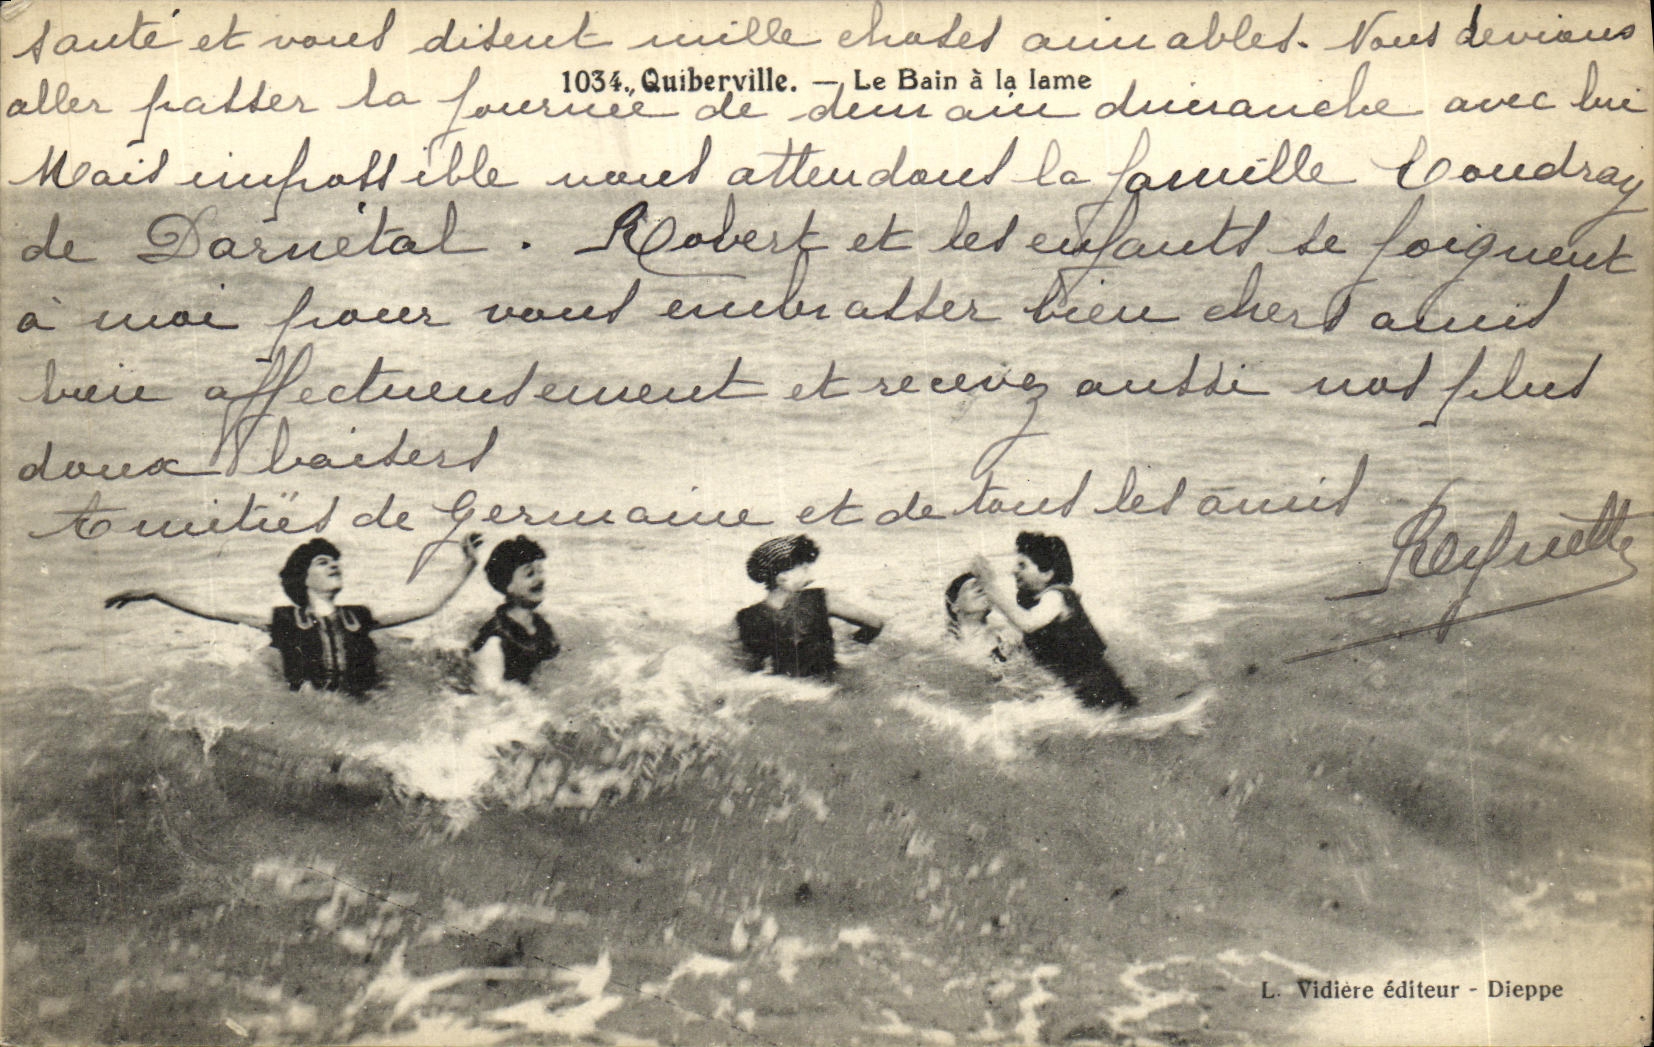 santé et vous disent mille choses aimables. Nous devions
1034. Quiberville. — Le Bain à la lame
aller passer la journée de demain dimanche avec lui
Mais impossible nous attendons la famille Coudray
de Darnétal. Robert et les enfants se joignent
à moi pour vous embrasser bien chers amis
bien affectueusement et recevez aussi nos plus
doux baisers
Amitiés de Germaine et de tous les amis
L. Vidière éditeur - Dieppe